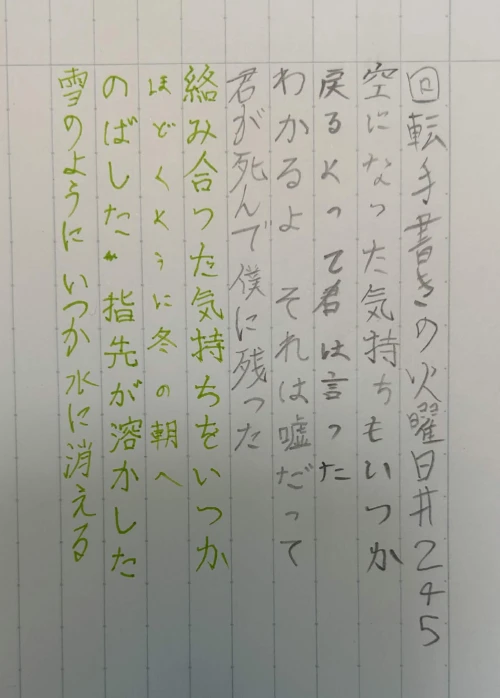 回転手書きの火曜日井245
空になった気持ちもいつか
戻るよって君は言った
わかるよ それは嘘だって
君が死んで僕に残った
絡み合った気持ちをいつか
ほどくように冬の朝へ
のばした 指先が溶かした
雪のように いつか水に消える